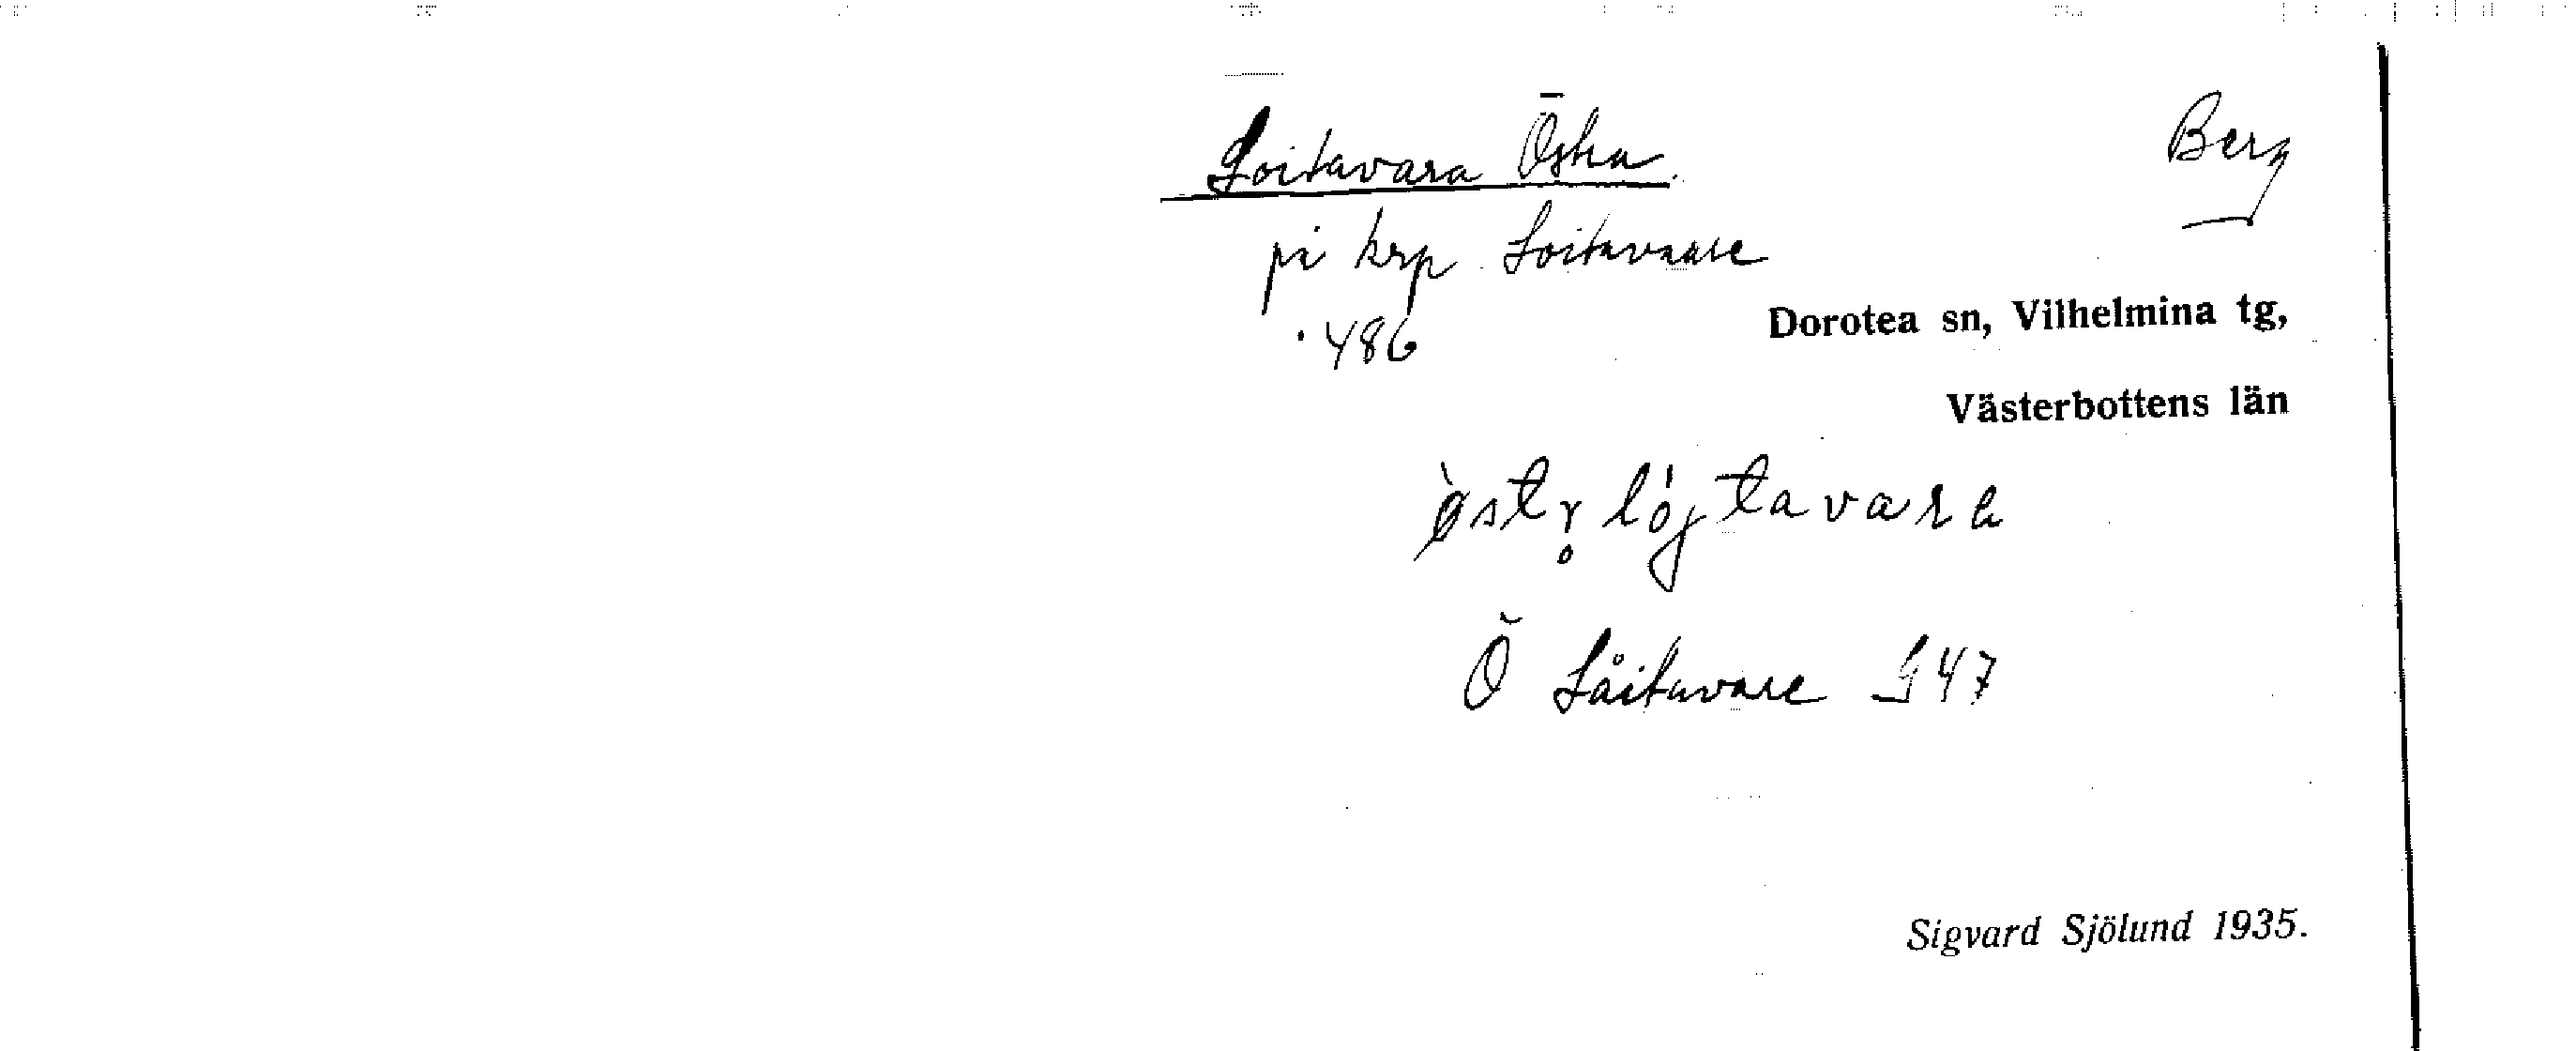 Loitavara Östra. Berg
på krp Loitavaare
· 486
Dorotea sn, Vilhelmina tg,
Västerbottens län
Ö Låitavare G47
Sigvard Sjölund 1935.